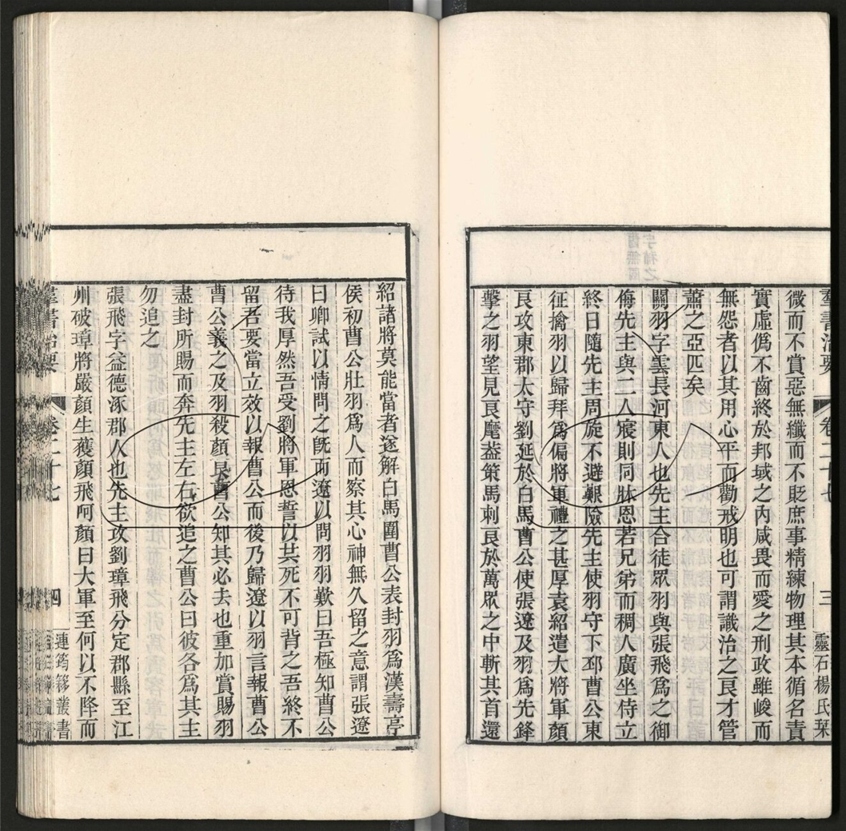 微而不賞惡無纖而不貶庶事精練物理其本循名責
實虛僞不齒終於邦域之內咸畏而愛之刑政雖峻而
無怨者以其用心平而勸戒明也可謂識治之良才管
蕭之亞匹矣
關羽字雲長河東人也先主合徒眾羽與張飛爲之御
侮先主與二人寢則同牀恩若兄弟而稠人廣坐侍立
終日隨先主周旋不避艱險先主使羽守下邳曹公東
征擒羽以歸拜爲偏將軍禮之甚厚袁紹遣大將軍顏
良攻東郡太守劉延於白馬曹公使張遼及羽爲先鋒
擊之羽望見良麾葢策馬刺良於萬眾之中斬其首還
羣書治要
卷二十七
三
靈石楊氏栞
紹諸將莫能當者遂解白馬圍曹公表封羽爲漢壽亭
侯初曹公壯羽爲人而察其心神無久留之意謂張遼
曰卿試以情問之旣而遼以問羽羽歎曰吾極知曹公
待我厚然吾受劉將軍恩誓以共死不可背之吾終不
留吾要當立效以報曹公而後乃歸遼以羽言報曹公
曹公義之及羽殺顏良曹公知其必去也重加賞賜羽
盡封所賜而奔先主左右欲追之曹公曰彼各爲其主
勿追之
張飛字益德涿郡人也先主攻劉璋飛分定郡縣至江
州破璋將嚴顏生獲顏飛呵顏曰大軍至何以不降而
羣書治要
卷二十七
四
連筠簃叢書